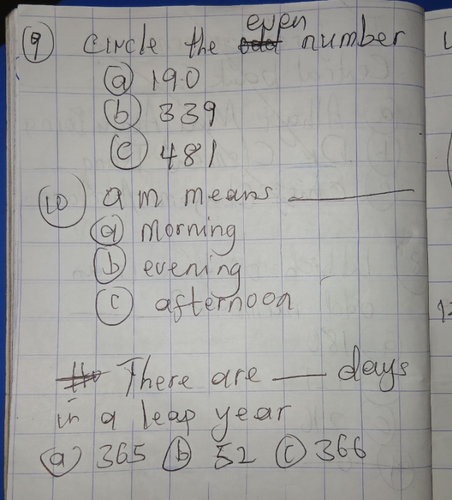 9 Circle the even number
a 190
b 339
c 481
10 a m means ______
a morning
b evening
c afternoon
There are ___ days
in a leap year
a 365 b 52 c 366